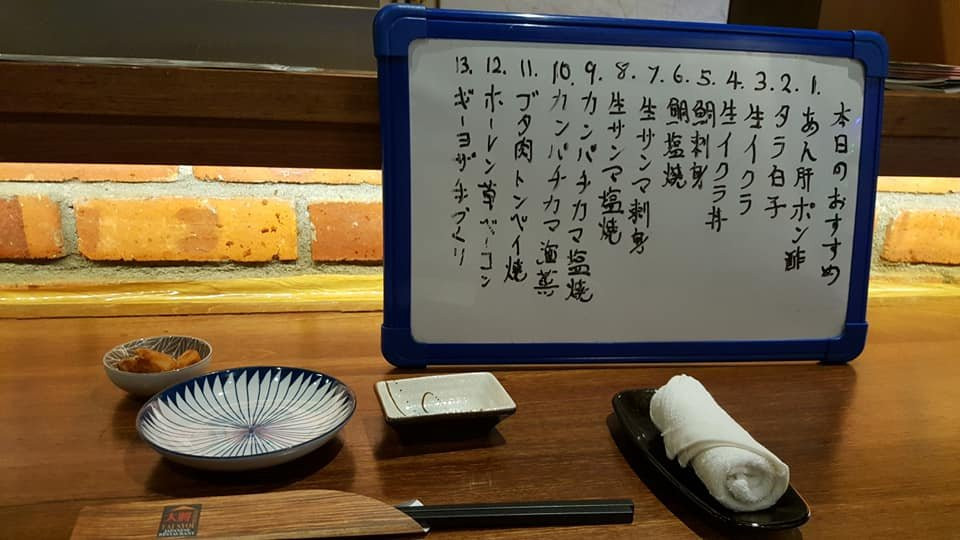 本日のおすすめ
1. あん肝ポン酢
2. タラ白子
3. 生イクラ
4. 生イクラ丼
5. 鯛刺身
6. 鯛塩焼
7. 生サンマ刺身
8. 生サンマ塩焼
9. カンパチカマ塩焼
10. カンパチカマ
11. ブタ肉トンペイ焼
12. ホーレン草ベーコン
13. ギョーザ手づくり
大将
TAISYOU
JAPANESE
RESTAURANT